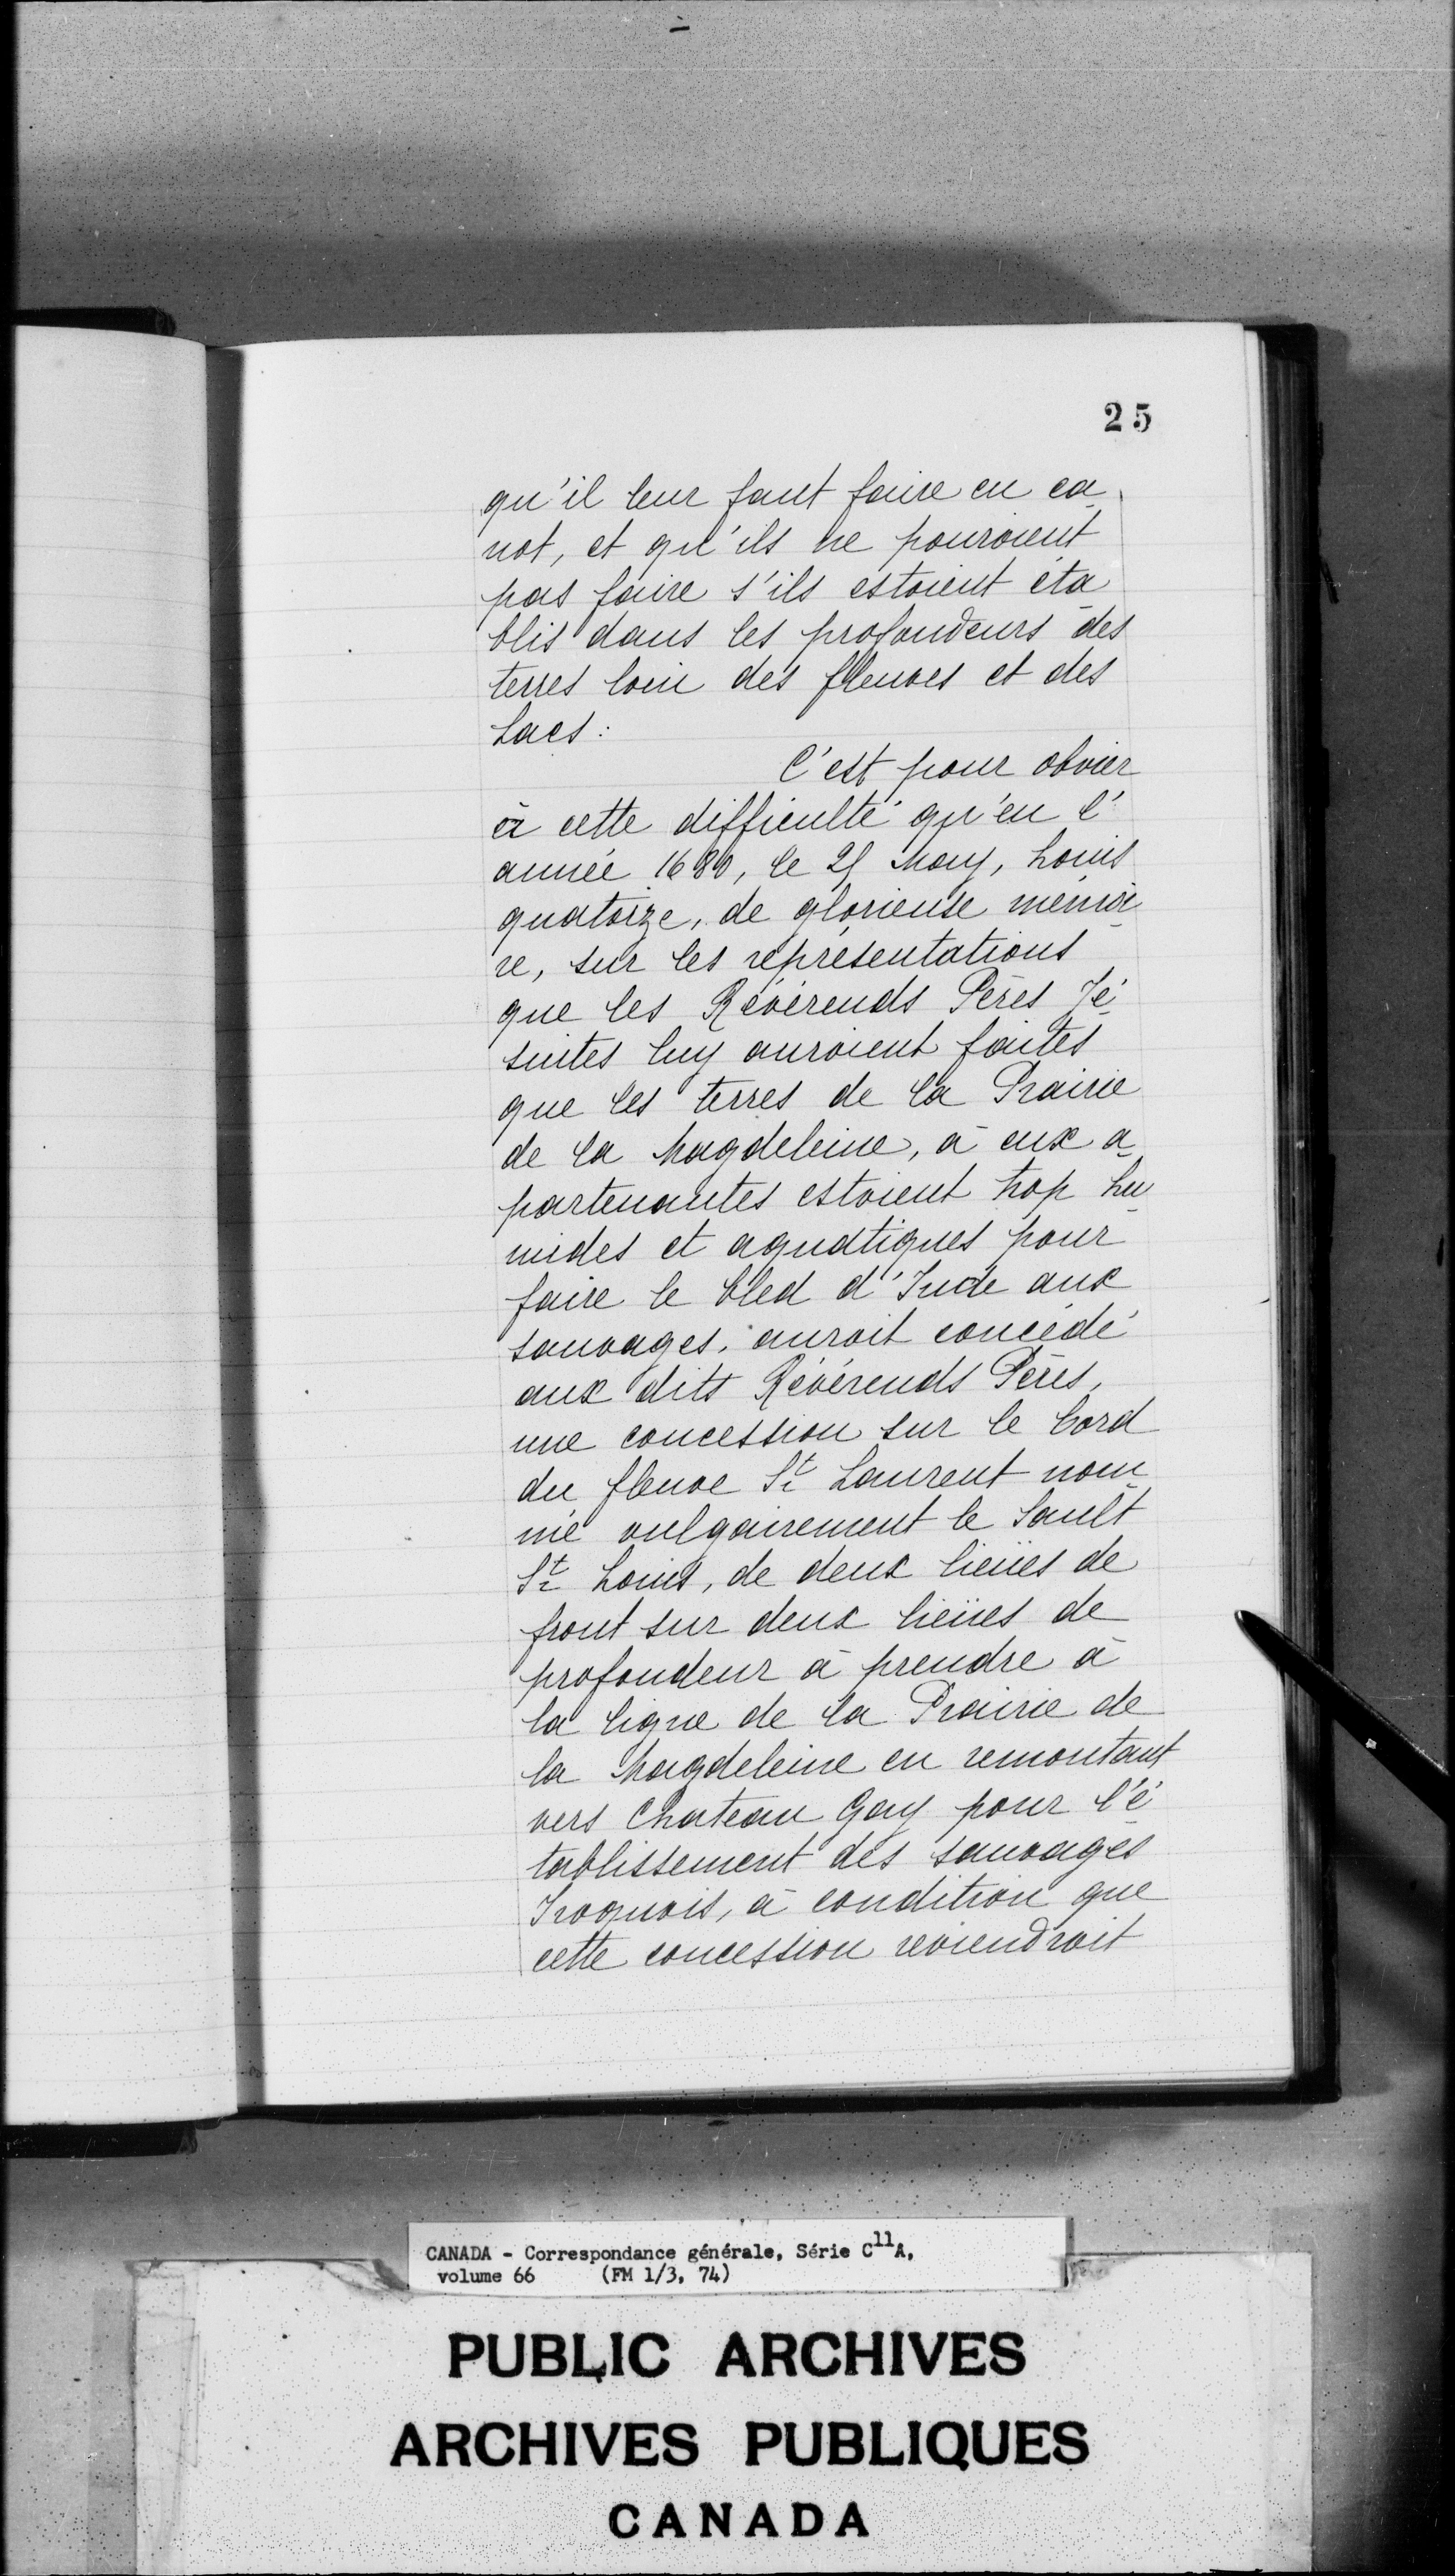 25
qu'il leur faut faire en ca-
not, et qu'ils ne pouroient
pas faire s'ils estoient éta-
blis dans les profondeurs des
terres loin des fleuves et des
Lacs:
C'est pour obvier
à cette difficulté qu'en l'
année 1680, le 29 May, Louis
quatorze, de glorieuse mémoi-
re, sur les représentations
que les Révérends Pères Jé-
suites luy auroient faites
que les terres de la Prairie
de la Magdeleine, à eux a-
partenantes estoient trop hu-
mides et aquatiques pour
faire le bled d'Inde aux
sauvages, auroit concédé
aux dits Révérends Pères,
une concession sur le bord
du fleuve St Laurent nom-
mé vulgairement le Sault
St Louis, de deux lieües de
front sur deux lieües de
profondeur à prendre à
la ligne de la Prairie de
la Magdeleine en remontant
vers Chateau Gay pour l'é-
tablissement des sauvages
Iroquois, à condition que
cette concession reviendroit
CANADA - Correspondance générale, Série C11A,
volume 66 (FM 1/3, 74)
PUBLIC ARCHIVES
ARCHIVES PUBLIQUES
CANADA